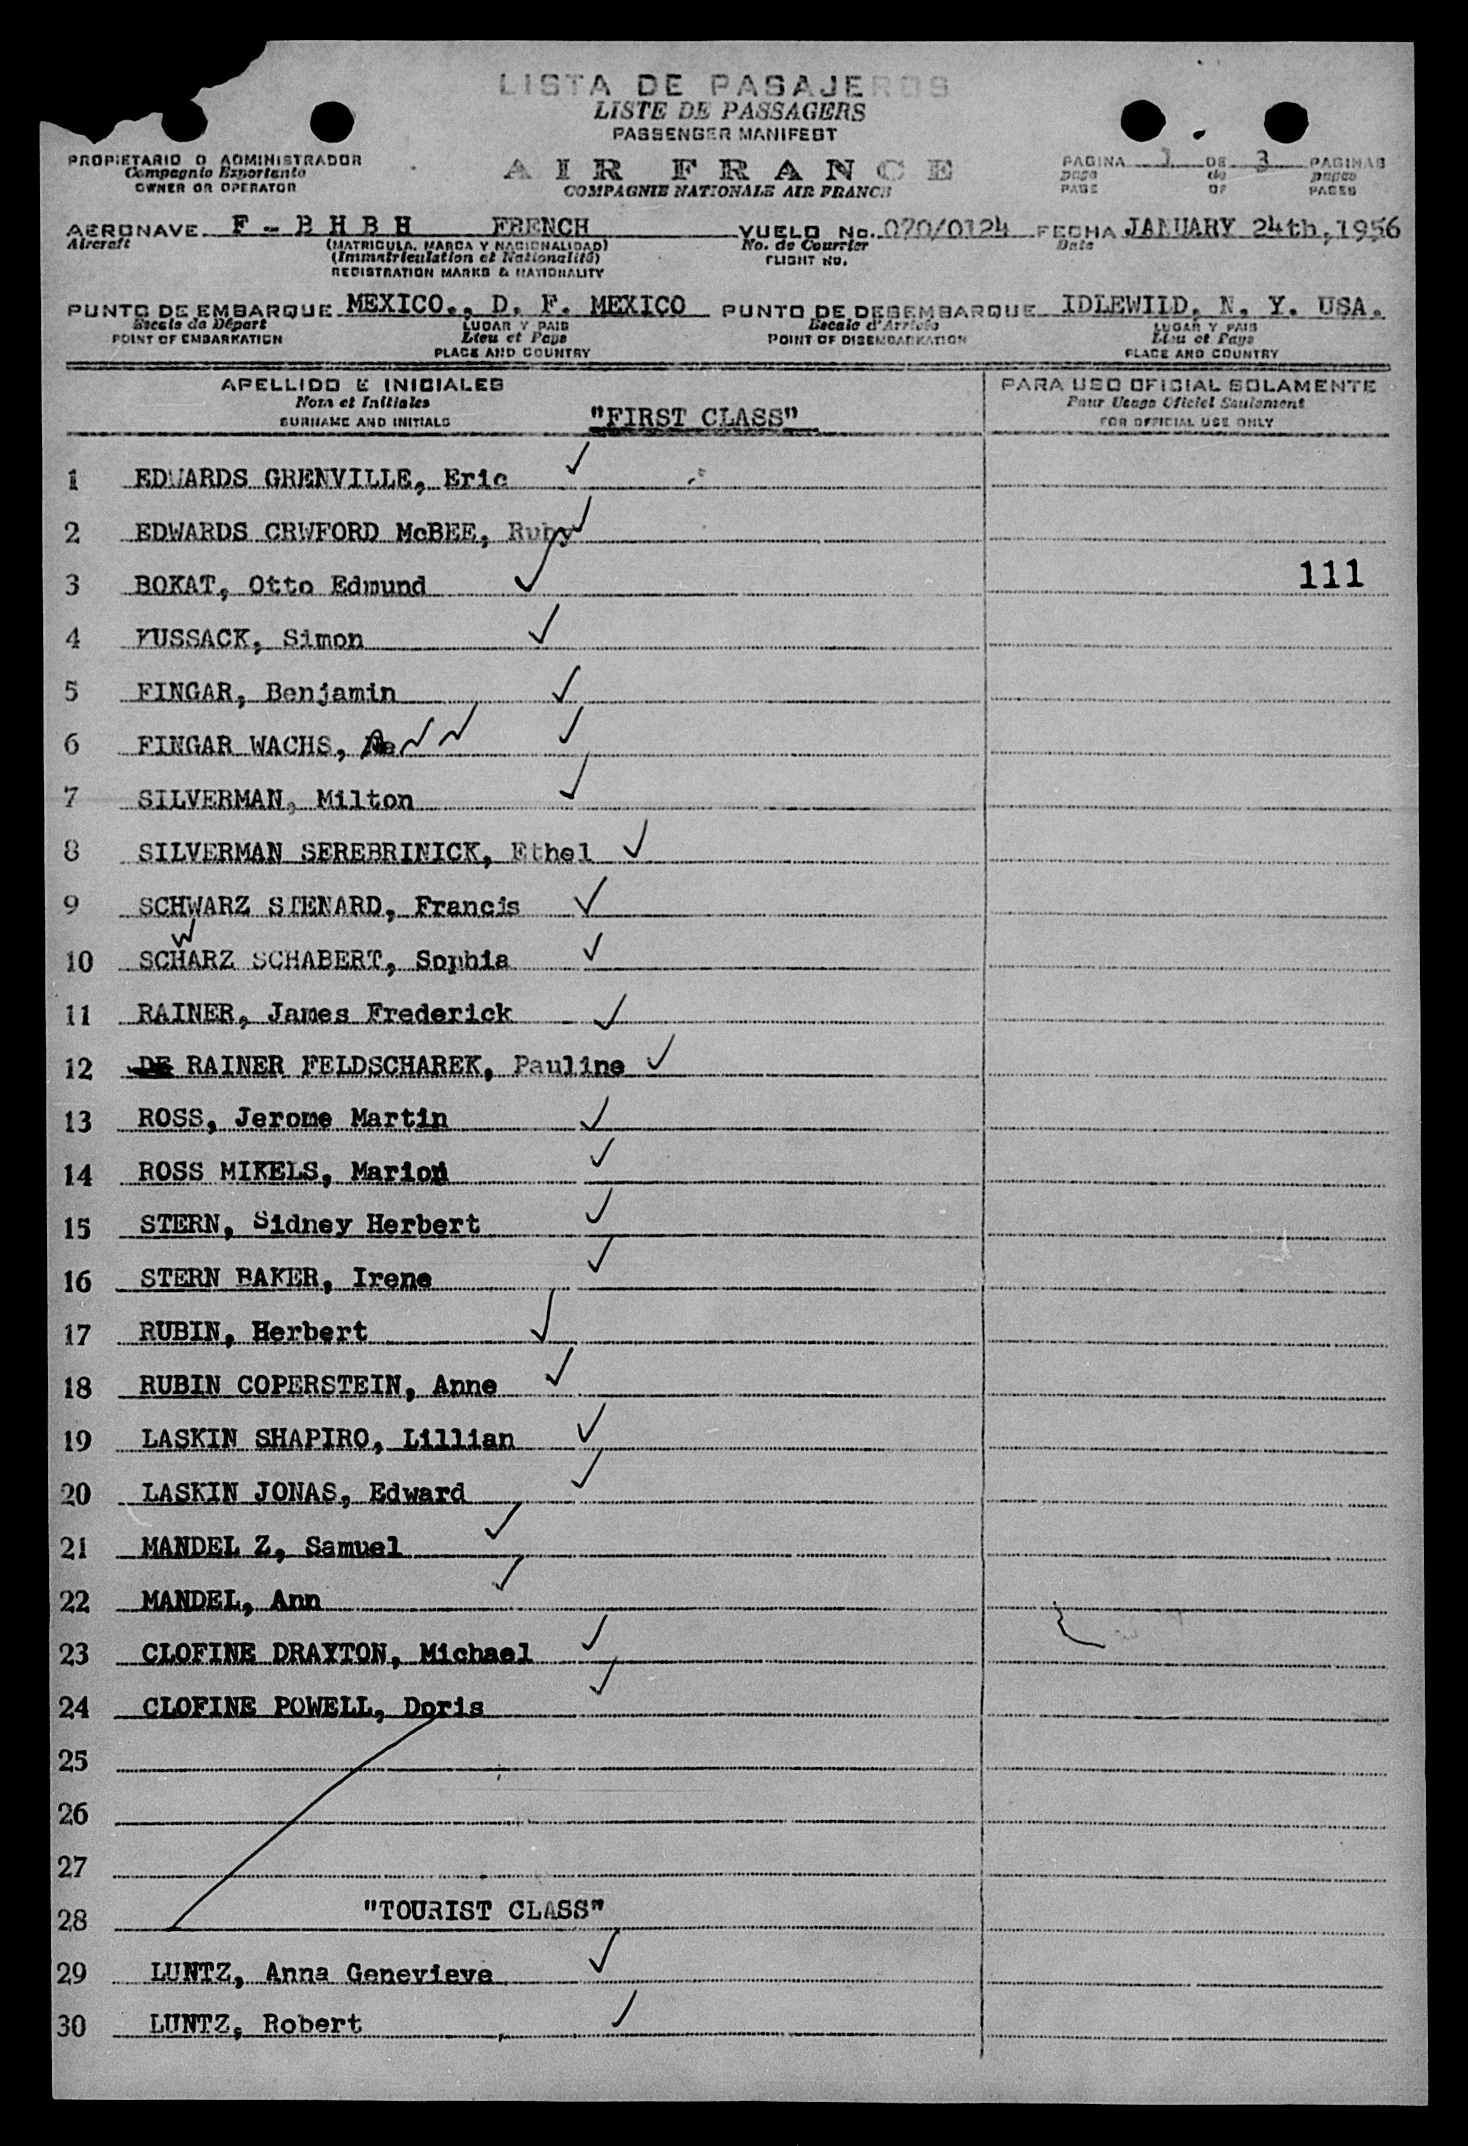 LISTA DE PASAJEROS
LISTE DE PASSAGERS
PASSENGER MANIFEST
PROPIETARIO O ADMINISTRADOR
Compagnie Exportante
OWNER OR OPERATOR
AIR FRANCE
COMPAGNIE NATIONALE AIR FRANCE
PAGINA 1 DE 3 PAGINAS
page de pages
PAGE OF PAGES
AERONAVE F - B H B H FRENCH VUELO No. 070/0124 FECHA JANUARY 24th,1956
Aircraft (MATRICULA, MARCA Y NACIONALIDAD) No. de Courrier Date
(Immatriculation et Nationalité) FLIGHT NO.
REGISTRATION MARKS & NATIONALITY
PUNTO DE EMBARQUE MEXICO., D. F. MEXICO PUNTO DE DESEMBARQUE IDLEWILD, N. Y. USA.
Escale de Départ LUGAR Y PAIS Escale d'Arrivée LUGAR Y PAIS
POINT OF EMBARKATION Lieu et Pays POINT OF DISEMBARKATION Lieu et Pays
PLACE AND COUNTRY PLACE AND COUNTRY
APELLIDO E INICIALES PARA USO OFICIAL SOLAMENTE
Nom et Initiales Pour Usage Officiel Seulement
SURNAME AND INITIALS "FIRST CLASS" FOR OFFICIAL USE ONLY
1 EDWARDS GRENVILLE, Eric
2 EDWARDS CRWFORD McBEE, Ruby
3 BOKAT, Otto Edmund 111
4 KUSSACK, Simon
5 FINGAR, Benjamin
6 FINGAR WACHS,
7 SILVERMAN, Milton
8 SILVERMAN SEREBRINICK, Ethel
9 SCHWARZ SIENARD, Francis
W
10 SCHARZ SCHABERT, Sophia
11 RAINER, James Frederick
12 DE RAINER FELDSCHAREK, Pauline
13 ROSS, Jerome Martin
14 ROSS MIKELS, Marion
15 STERN, Sidney Herbert
16 STERN BAKER, Irene
17 RUBIN, Herbert
18 RUBIN COPERSTEIN, Anne
19 LASKIN SHAPIRO, Lillian
20 LASKIN JONAS, Edward
21 MANDEL Z, Samuel
22 MANDEL, Ann
23 CLOFINE DRAYTON, Michael
24 CLOFINE POWELL, Doris
25
26
27
28 "TOURIST CLASS"
29 LUNTZ, Anna Genevieve
30 LUNTZ, Robert